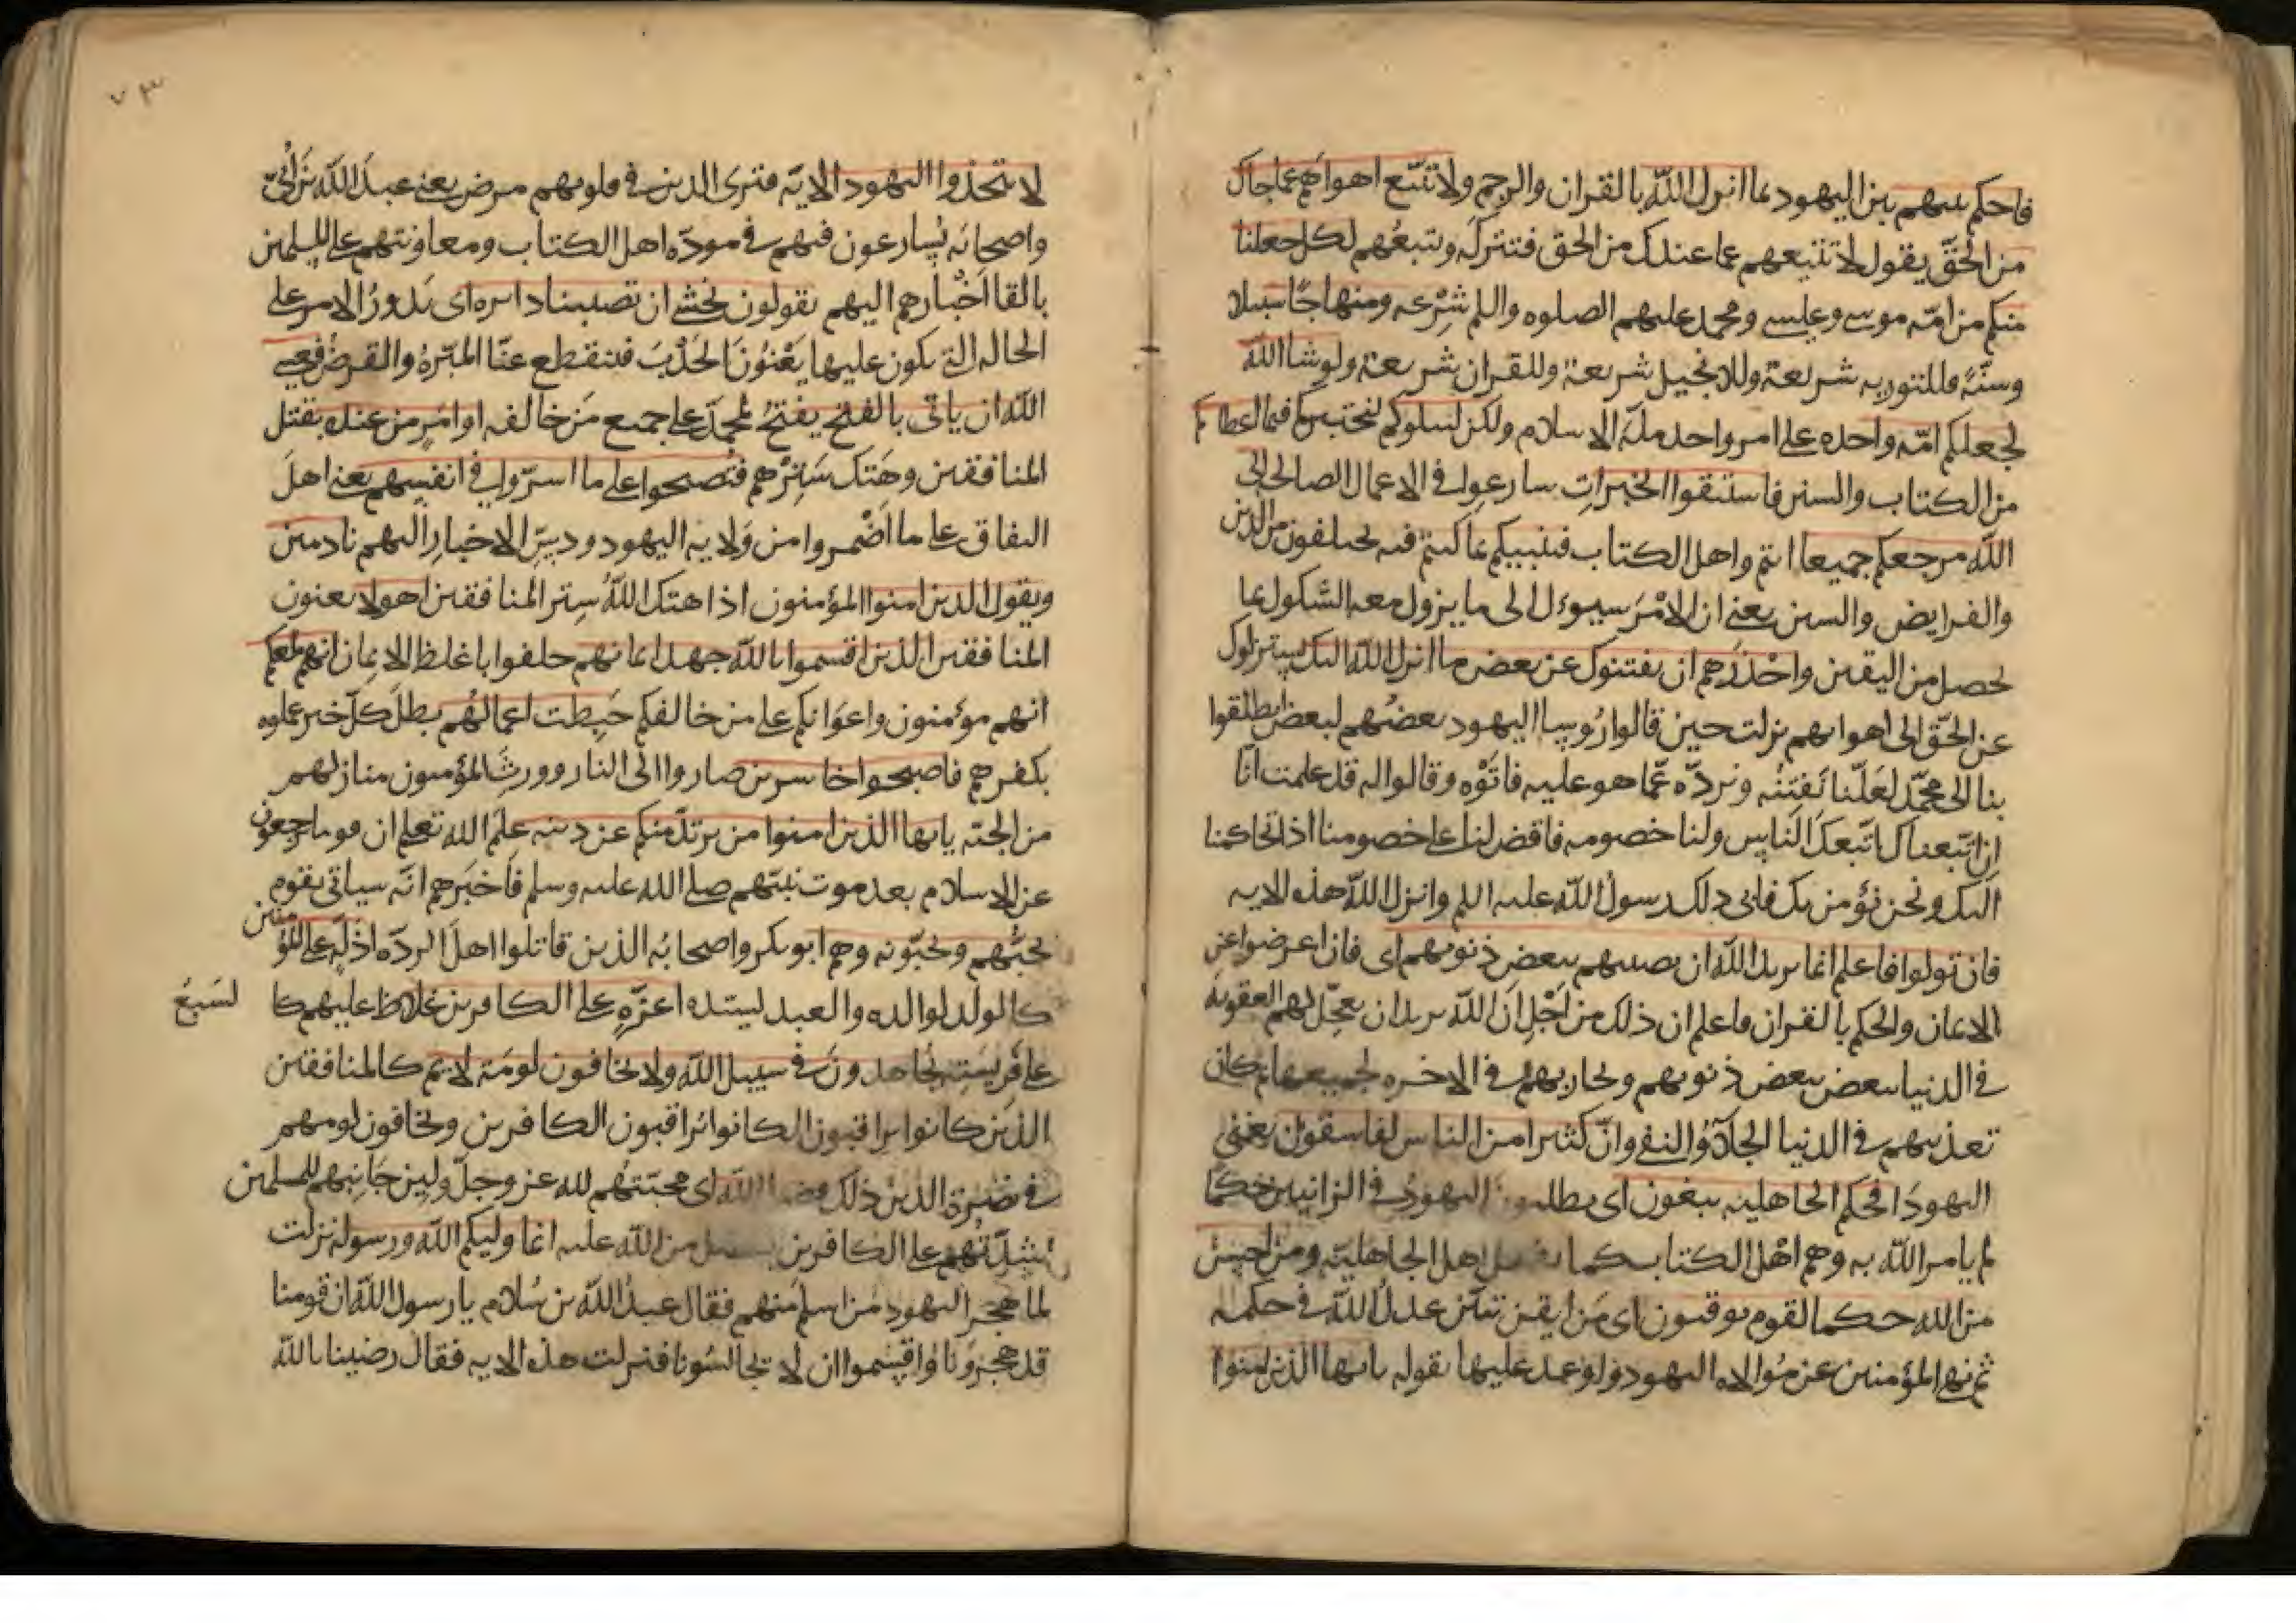 فاحكم بينهم بين اليهود بما انزل الله بالقران والرجم ولا تتبع اهواهم عما جاك
من الحق يقول لا تتبعهم عما عندك من الحق فتتركه وتتبعهم لكل جعلنا
منكم من امه موسى وعيسى ومحمد عليهم الصلوه والسلم شرعه ومنهاجا سبيلا
وسنّة فللتوريه شريعة وللانجيل شريعة وللقران شريعة ولو شا الله
لجعلكم امّه واحده على امر واحد ملّه الاسلام ولكن ليبلوكم لنختبركم فيما اعطاكم
من الكتاب والسنن فاستبقوا الخيرات سارعوا في الاعمال الصالحه الى
الله مرجعكم جميعا انتم واهل الكتاب فينبيكم بما كنتم فيه تختلفون من الدين
والفرايض والسنن يعني ان الامر سيوءل الى ما يزول معه الشكوك بما
يحصل من اليقين واحذرهم ان يفتنوك عن بعض ما انزل الله اليك يستزلوك
عن الحق الى اهوايهم نزلت حين قالوا رُوسا اليهود بعضهم لبعض انطلقوا
بنا الى محمّد لعلّنا نفتِنُه ونردّه عمّا هو عليه فاتَوْه وقالوا له قد علمت انّا
ان اتّبعناك اتّبعك الناس ولنا خصومه فاقض لنا على خصومنا اذا تحاكمنا
اليك ونحن نؤمن بك فابى ذلك رسول الله عليه السلم وانزل الله هذه الايه
فان تولوا فاعلم انما يريد الله ان يصيبهم ببعض ذنوبهم اى فان اعرضوا عن
الايمان والحكم بالقران فاعلم ان ذلك من اجل ان الله يريد ان يعجّل لهم العقوبه
في الدنيا ببعض ذنوبهم ويجازيهم في الاخره بجميعها ثم كان
تعذيبهم في الدنيا الجلاؤ والنفي وانّ كثيرا من الناس لفاسقون يعني
اليهود افحكم الجاهليه يبغون اى يطلبون اليهود في الزانيين حكما
لم يامر الله به وهم اهل الكتاب كما يفعل اهل الجاهليّه ومن احسن
من الله حكما لقوم يوقنون اى من ايقن تبيّن عدل الله في حكمه
ثم نهى المؤمنين عن مُوالاه اليهود واوعد عليها بقوله يايها الذين امنوا
٧٣
لا تتخذوا اليهود الايه فترى الذين في قلوبهم مرض يعني عبد الله بن اُبىّ
واصحابَه يُسارعون فيهم في مودّه اهل الكتاب ومعاونتهم على المسلمين
بالقا اخبارهم اليهم يقولون نخشى ان تصيبنا دايره اى يدور الامر على
الحاله التي يكون عليها يعنون الجَدْبَ فتنقطع عنّا الميّرهُ والقرضُ فعسى
الله ان ياتي بالفتح يفتحُ لمحمّد على جميع مَن خالفه او امر من عنده بقتل
المنافقين وهَتك سَترهم فيُصبحوا على ما اسرّوا في انفسهم يعني اهلَ
النفاق على ما اَضْمروا من وَلايه اليهود ودسّ الاخبار اليهم نادمين
ويقول الذين امنوا المؤمنون اذا هتك الله سِتر المنافقين اهولا يعنون
المنافقين الذين اقسموا بالله جهد ايمانهم حلفوا باغلظ الايمان انهم لمعكم
انهم مؤمنون واعوانكم على من خالفكم حَبِطت اعمالُهم بطل كلّ خير عملوه
بكفرهم فاصبحوا خاسرين صاروا الى النار وورِثَ المؤمنون منازلهم
من الجنه يايها الذين امنوا من يرتدّ منكم عن دينه علم الله تعلى ان قوما يرجعون
عن الاسلام بعد موت نبيّهم صلى الله عليه وسلم فاَخبَرهم انّه سياتى بقوم
يحبّهم ويحبّونه وهم ابو بكر واصحابُه الذين قاتلوا اهل الردّه اذلّه على المؤمنين
كالولد لوالده والعبد لسيّده اعزّهٍ على الكافرين غلاظ عليهم كا لسَبعُ
على فريسَتِه يُجاهدونَ في سبيل الله ولا يخافون لومَة لايم كالمنافقين
الذين كانوا يراقبون الكانوا يُراقبون الكافرين ويخافون لومهم
في نصرة الدين ذلك فضل الله اى محبّتهُم لله عز وجلّ ولين جَانِبهم للمسلمين
وشدّتهم على الكافرين بفضل من الله عليه انما وليكم الله ورسوله نزلت
لما هجر اليهود من اسلم منهم فقال عبدُ الله بن سَلام يا رسول الله ان قومنا
قد هجرونا واقسموا ان لا يجالسُونا فنزلت هذه الايه فقال رضينا بالله